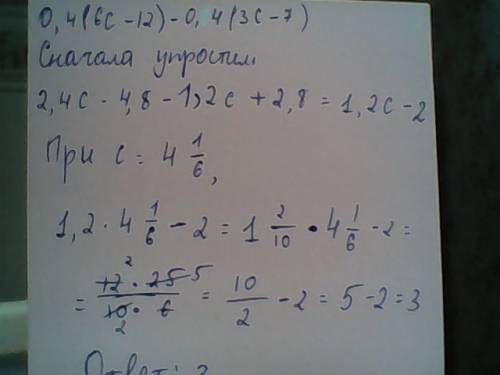 0,4(6с-12)-0,4(3с-7)
Сначала упростим
2,4с - 4,8 - 1,2с + 2,8 = 1,2с - 2
При с = 4 1/6,
1,2 · 4 1/6 - 2 = 1 2/10 · 4 1/6 - 2 =
= 12 2 · 25 5 / 10 2 · 6 = 10/2 - 2 = 5 - 2 = 3
Ответ: 3